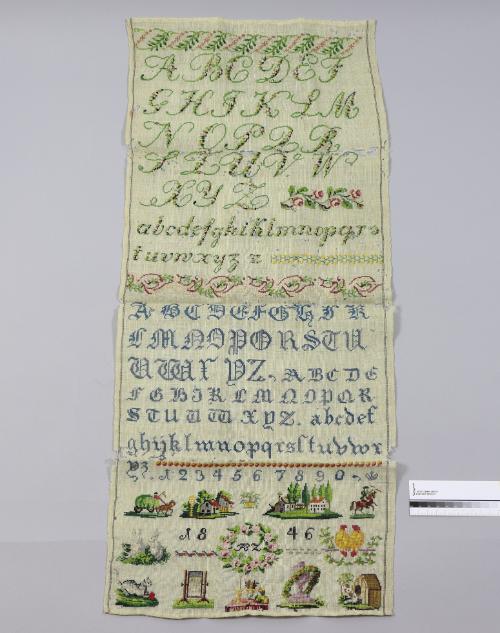 A B C D E F
G H I K L M
N O P Q R
S T U V W
X Y Z
a b c d e f g h i k l m n o p q r s
t u v w x y z z
A B C D E F G H I K
L M N O P Q R S T U
V W X Y Z. A B C D E
F G H I K L M N O P Q R
S T U V W X Y Z. a b c d e f
g h i j k l m n o p q r s ſ t u v w x
y z 1 2 3 4 5 6 7 8 9 0
18 46